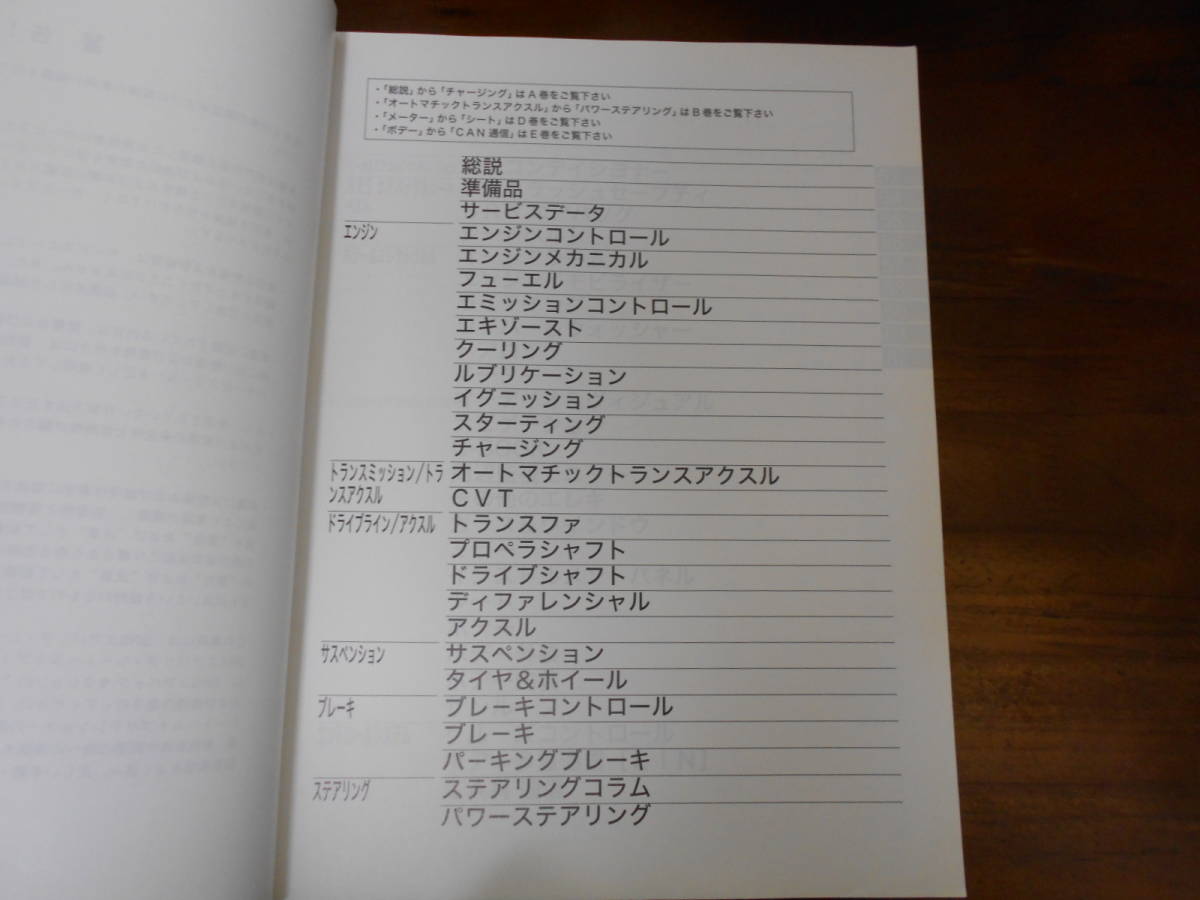 ・「総説」から「チャージング」はA巻をご覧下さい
・「オートマチックトランスアクスル」から「パワーステアリング」はB巻をご覧下さい
・「メーター」から「シート」はD巻をご覧下さい
・「ボデー」から「CAN通信」はE巻をご覧下さい
総説
準備品
サービスデータ
エンジン エンジンコントロール
エンジンメカニカル
フューエル
エミッションコントロール
エキゾースト
クーリング
ルブリケーション
イグニッション
スターティング
チャージング
トランスミッション/トラ オートマチックトランスアクスル
ンスアクスル CVT
ドライブライン/アクスル トランスファ
プロペラシャフト
ドライブシャフト
ディファレンシャル
アクスル
サスペンション サスペンション
タイヤ&ホイール
ブレーキ ブレーキコントロール
ブレーキ
パーキングブレーキ
ステアリング ステアリングコラム
パワーステアリング